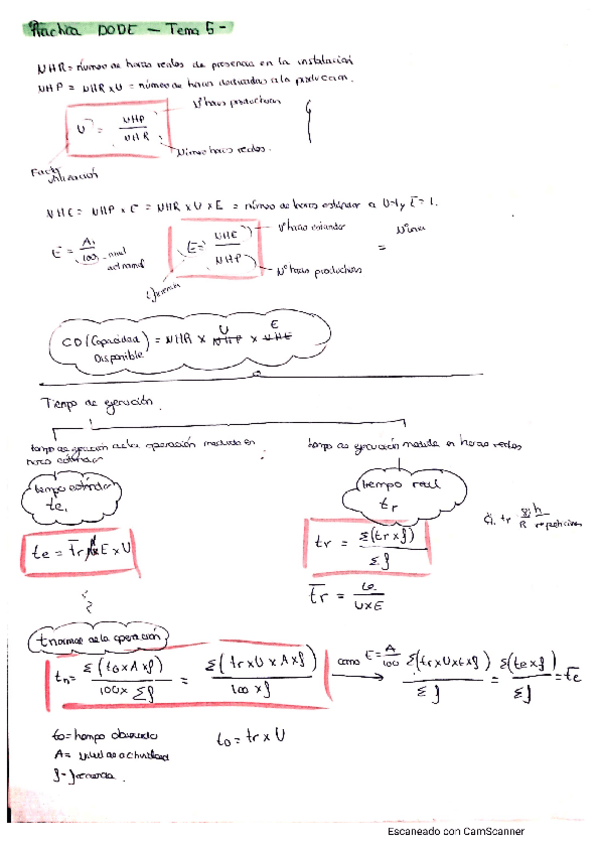 Práctica DODE - Tema 5-
NHR = número de horas reales de presencia en la instalación
NHP = NHR x U = número de horas dedicadas a la producción.
Nº horas productivas
U = NHP / NHR
Número horas reales.
Factor utilización
NHE = NHP x E = NHR x U x E = número de horas estándar a U=1 y E=1.
E = A / 100
nivel actividad
E = NHE / NHP
Nº horas estándar
Nº horas productivas
Eficiencia
=
CD (Capacidad Disponible) = NHR x NHP x NHE
U E
Tiempo de ejecución.
tiempo de ejecución de la operación medido en horas estándar
tiempo de ejecución medida en horas reales
tiempo estándar te.
tiempo real tr
te = tr x E x U
tr = Σ(tr x f) / Σ f
tr = te / U x E
tnormal de la operación
tn = Σ(to x A x f) / 100 x Σ f = Σ(tr x U x A x f) / 100 x f
como E = A / 100
Σ(tr x U x E x f) / Σ f = Σ(te x f) / Σ f = te
to = tiempo observado
to = tr x U
A = nivel de actividad
f = frecuencia.
Escaneado con CamScanner